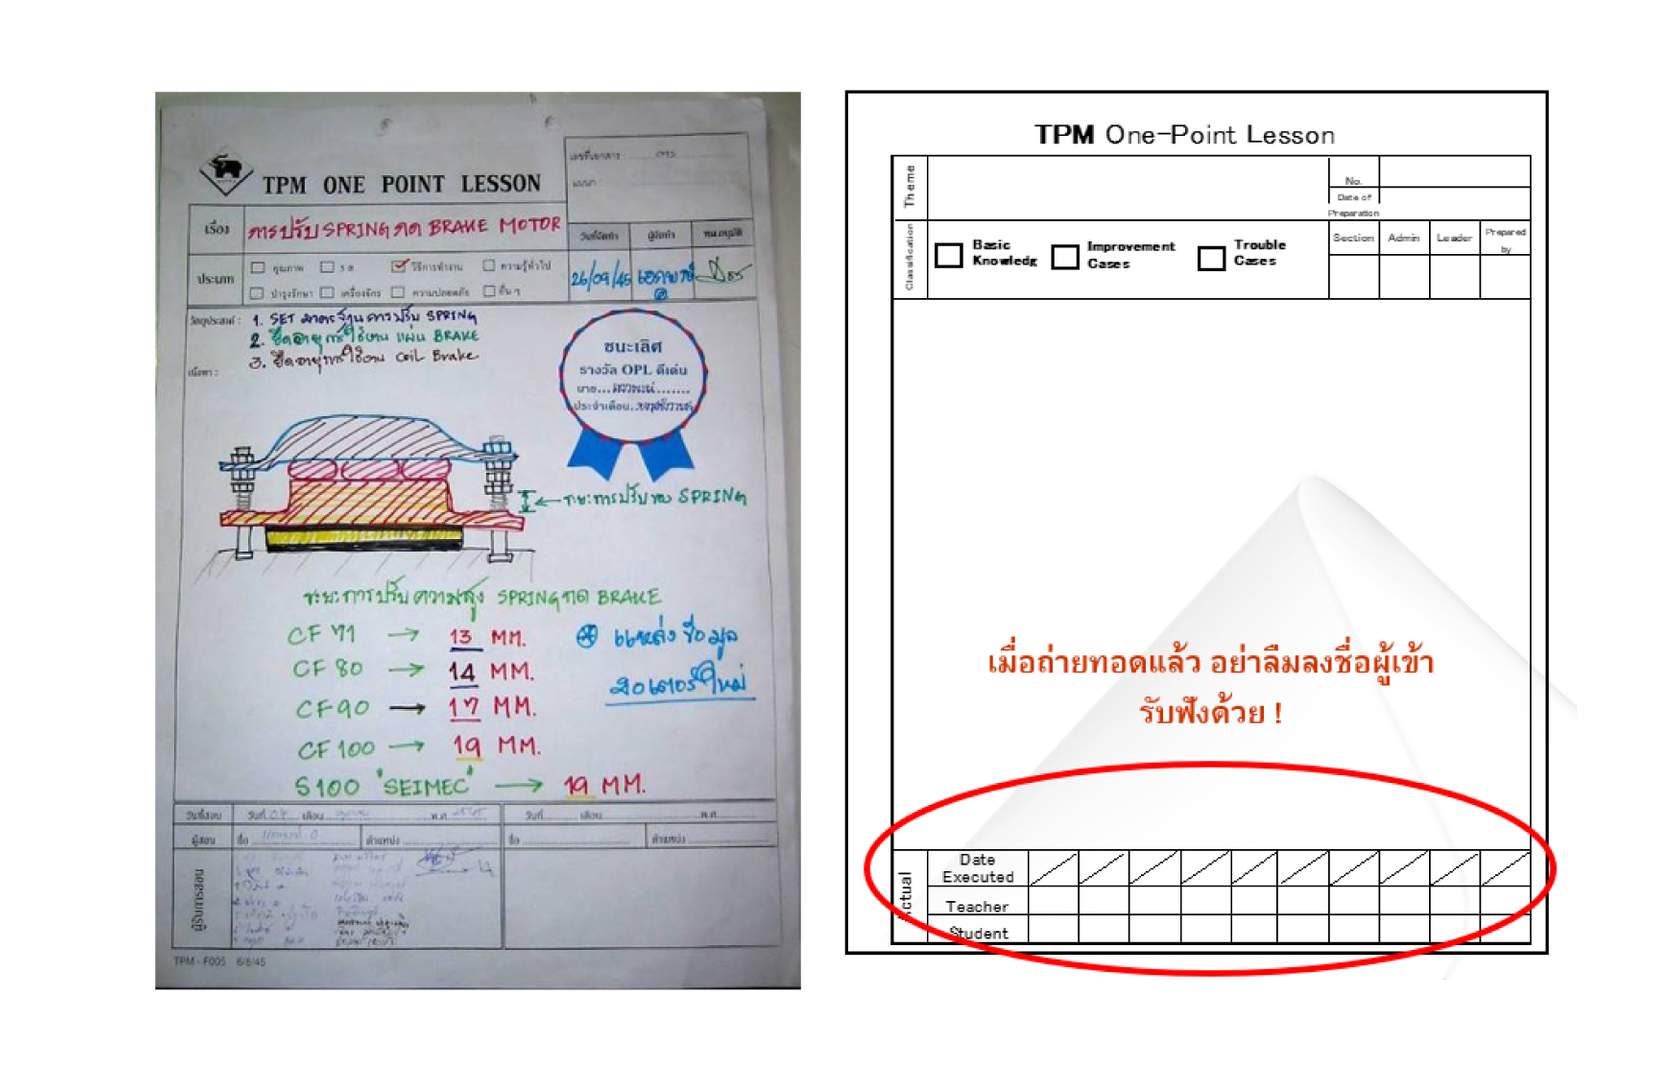 TPM ONE POINT LESSON
เลขที่เอกสาร
แผนก
เรื่อง
การปรับ SPRING กด BRAKE MOTOR
วันที่จัดทำ ผู้จัดทำ ผบ.อนุมัติ
ประเภท
คุณภาพ 5 ส วิธีการทำงาน ความรู้ทั่วไป
บำรุงรักษา เครื่องจักร ความปลอดภัย อื่น ๆ
26/09/45
วัตถุประสงค์ :
1. SET มาตรฐานการปรับ SPRING
2. ยืดอายุการใช้งาน แผ่น BRAKE
3. ยืดอายุการใช้งาน Coil Brake
เนื้อหา :
ชนะเลิศ
รางวัล OPL ดีเด่น
นาย
ประจำเดือน
ระยะการปรับของ SPRING
ระยะการปรับความสูง SPRING กด BRAKE
CF 71 → 13 MM.
CF 80 → 14 MM.
CF 90 → 17 MM.
CF 100 → 19 MM.
S100 "SEIMEC" → 19 MM.
แหล่งข้อมูล
มอเตอร์ใหม่
วันที่สอน วันที่ เดือน พ.ศ. วันที่ เดือน พ.ศ.
ผู้สอน ชื่อ ตำแหน่ง ชื่อ ตำแหน่ง
ผู้รับการสอน
TPM - F005 6/6/45
TPM One-Point Lesson
Theme
No.
Date of
Preparation
Classification
Basic
Knowledg
Improvement
Cases
Trouble
Cases
Section Admin Leader Prepared
by
เมื่อถ่ายทอดแล้ว อย่าลืมลงชื่อผู้เข้า
รับฟังด้วย !
Actual
Date
Executed
Teacher
Student